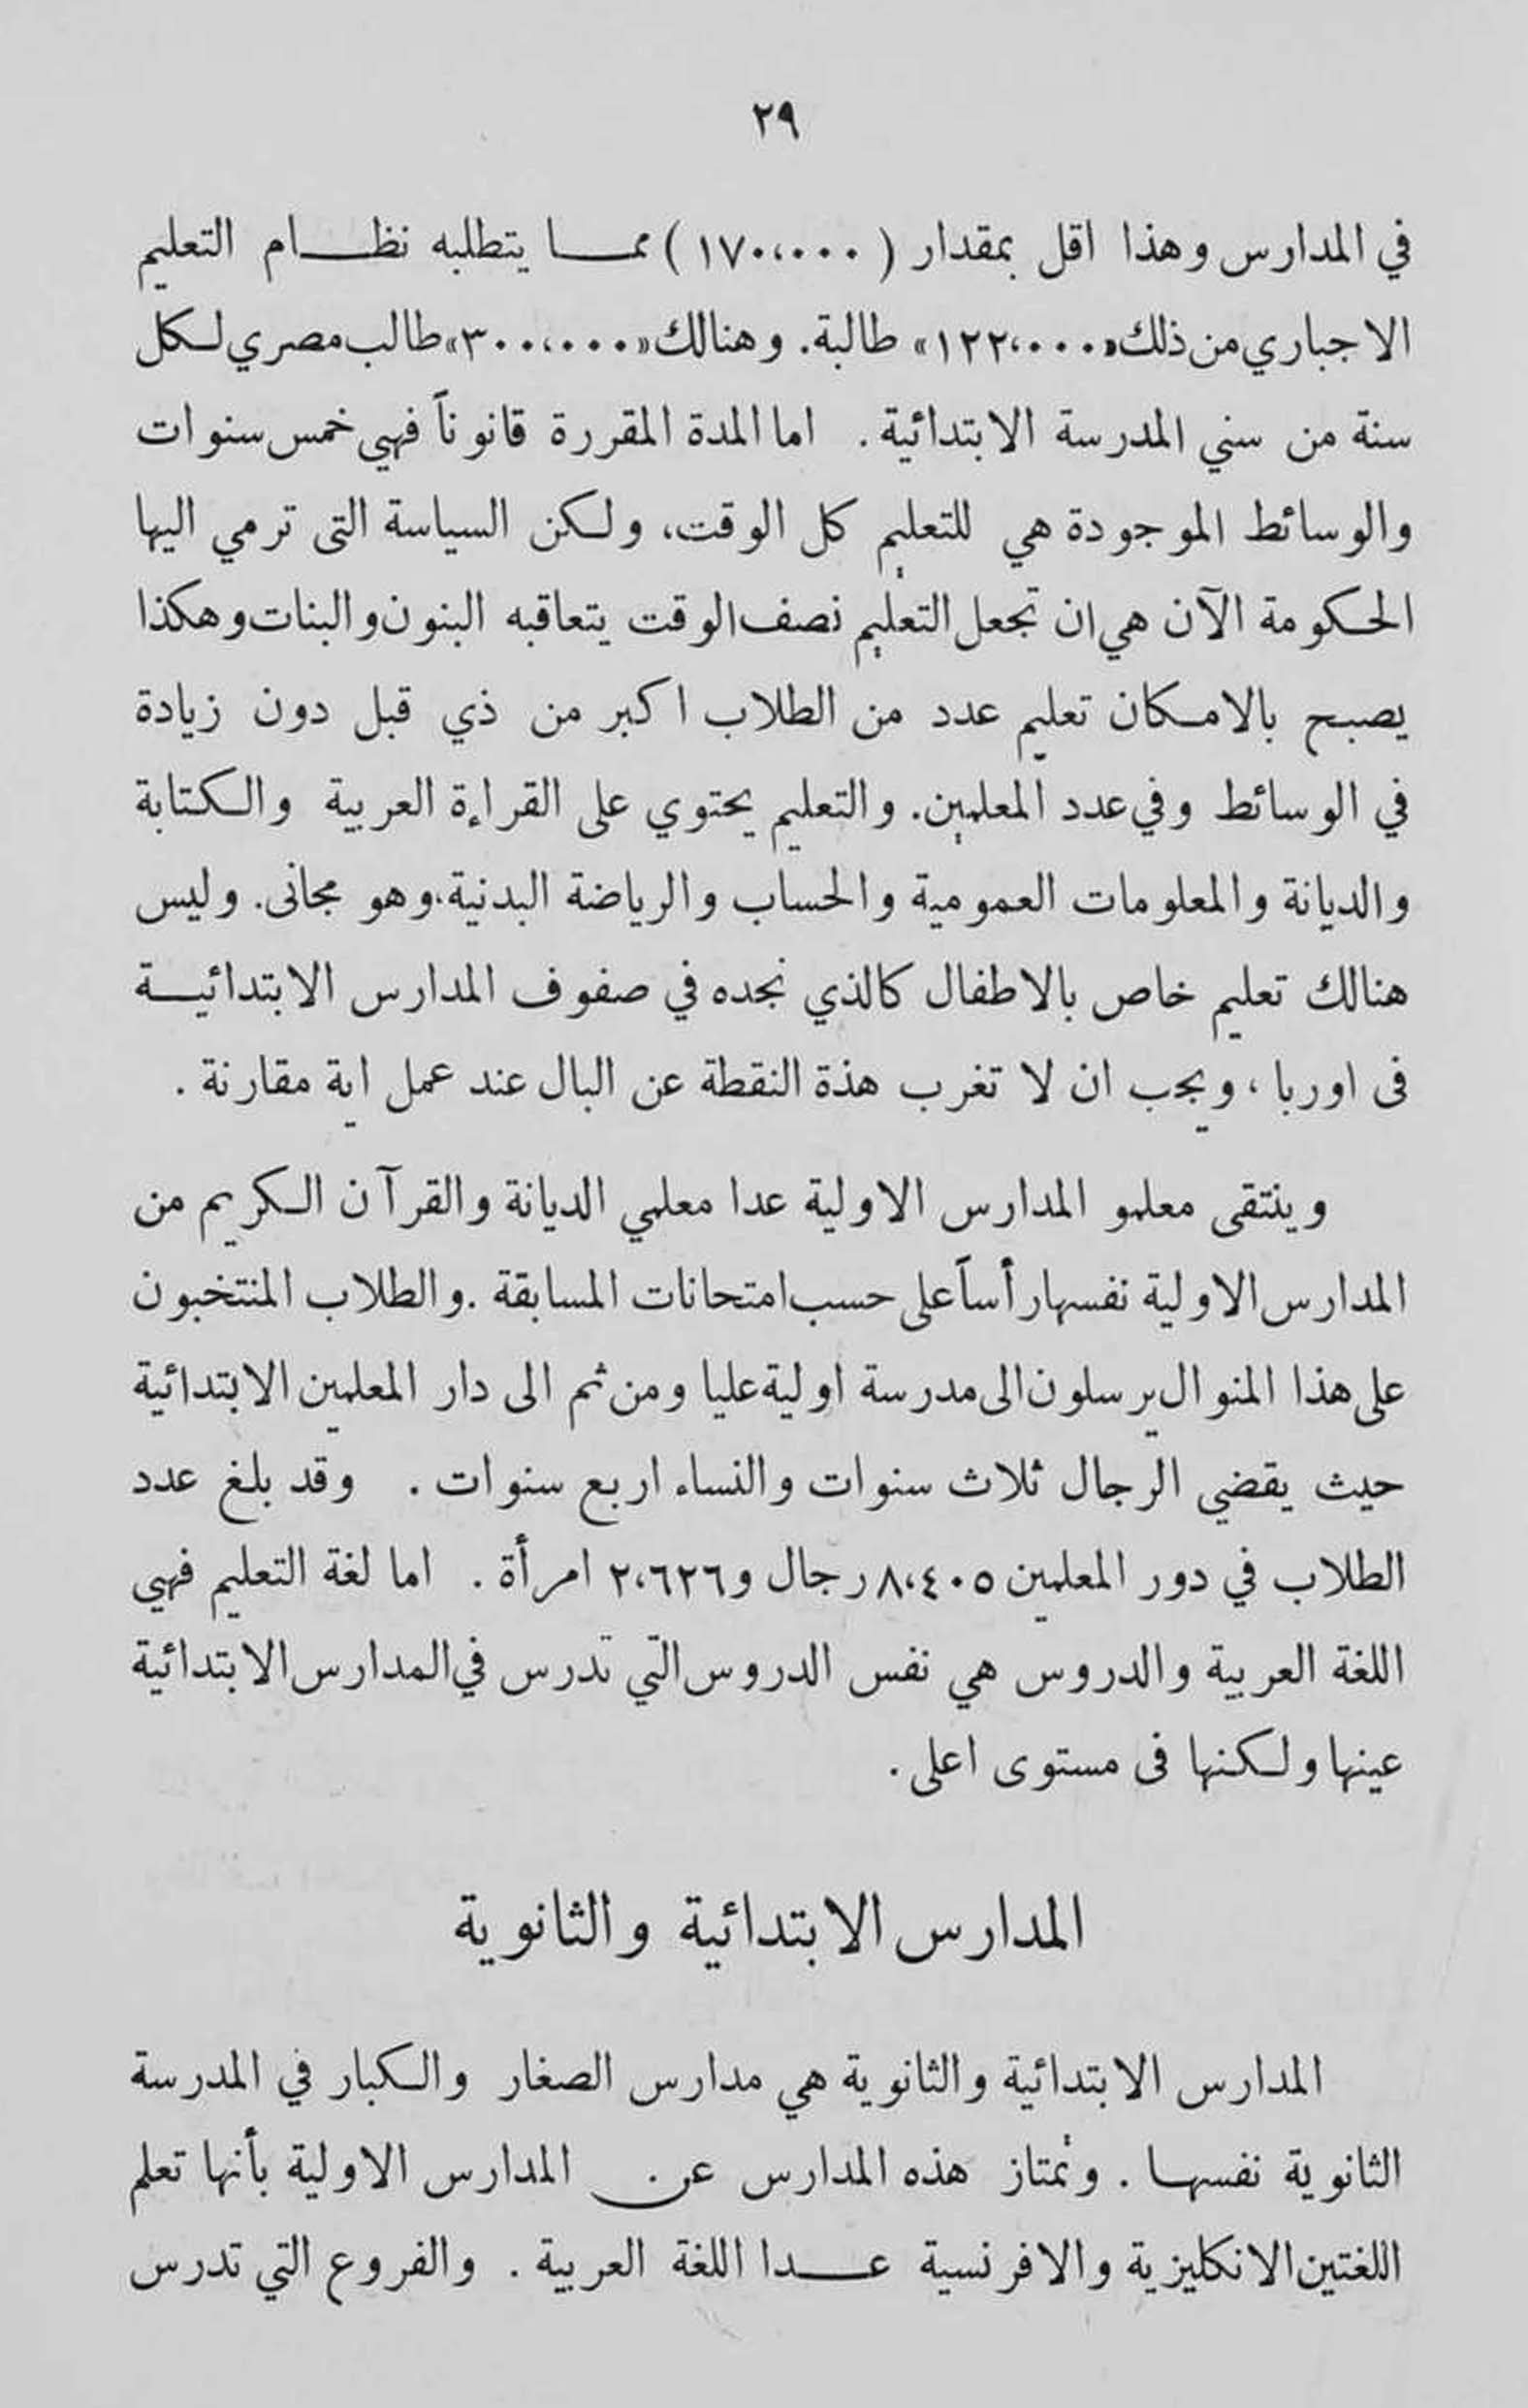 ٢٩
في المدارس وهذا اقل بمقدار ( ١٧٠،٠٠٠ ) مما يتطلبه نظام التعليم
الاجباري من ذلك «١٢٢،٠٠٠» طالبة. وهنالك «٣٠٠،٠٠٠» طالب مصري لكل
سنة من سني المدرسة الابتدائية . اما المدة المقررة قانوناً فهي خمس سنوات
والوسائط الموجودة هي للتعليم كل الوقت، ولكن السياسة التى ترمي اليها
الحكومة الآن هي ان تجعل التعليم نصف الوقت يتعاقبه البنون والبنات وهكذا
يصبح بالامكان تعليم عدد من الطلاب اكبر من ذي قبل دون زيادة
في الوسائط وفي عدد المعلمين. والتعليم يحتوي على القراءة العربية والكتابة
والديانة والمعلومات العمومية والحساب والرياضة البدنية، وهو مجانى. وليس
هنالك تعليم خاص بالاطفال كالذي نجده في صفوف المدارس الابتدائية
فى اوربا ، ويجب ان لا تغرب هذة النقطة عن البال عند عمل اية مقارنة .
وينتقى معلمو المدارس الاولية عدا معلمي الديانة والقرآن الكريم من
المدارس الاولية نفسها رأساً على حسب امتحانات المسابقة . والطلاب المنتخبون
على هذا المنوال يرسلون الى مدرسة اولية عليا ومن ثم الى دار المعلمين الابتدائية
حيث يقضي الرجال ثلاث سنوات والنساء اربع سنوات . وقد بلغ عدد
الطلاب في دور المعلمين ٨،٤٠٥ رجال و ٢،٦٢٦ امرأة . اما لغة التعليم فهي
اللغة العربية والدروس هي نفس الدروس التي تدرس في المدارس الابتدائية
عينها ولكنها فى مستوى اعلى .
المدارس الابتدائية والثانوية
المدارس الابتدائية والثانوية هي مدارس الصغار والكبار في المدرسة
الثانوية نفسها . وتمتاز هذه المدارس عن المدارس الاولية بأنها تعلم
اللغتين الانكليزية والافرنسية عدا اللغة العربية . والفروع التي تدرس